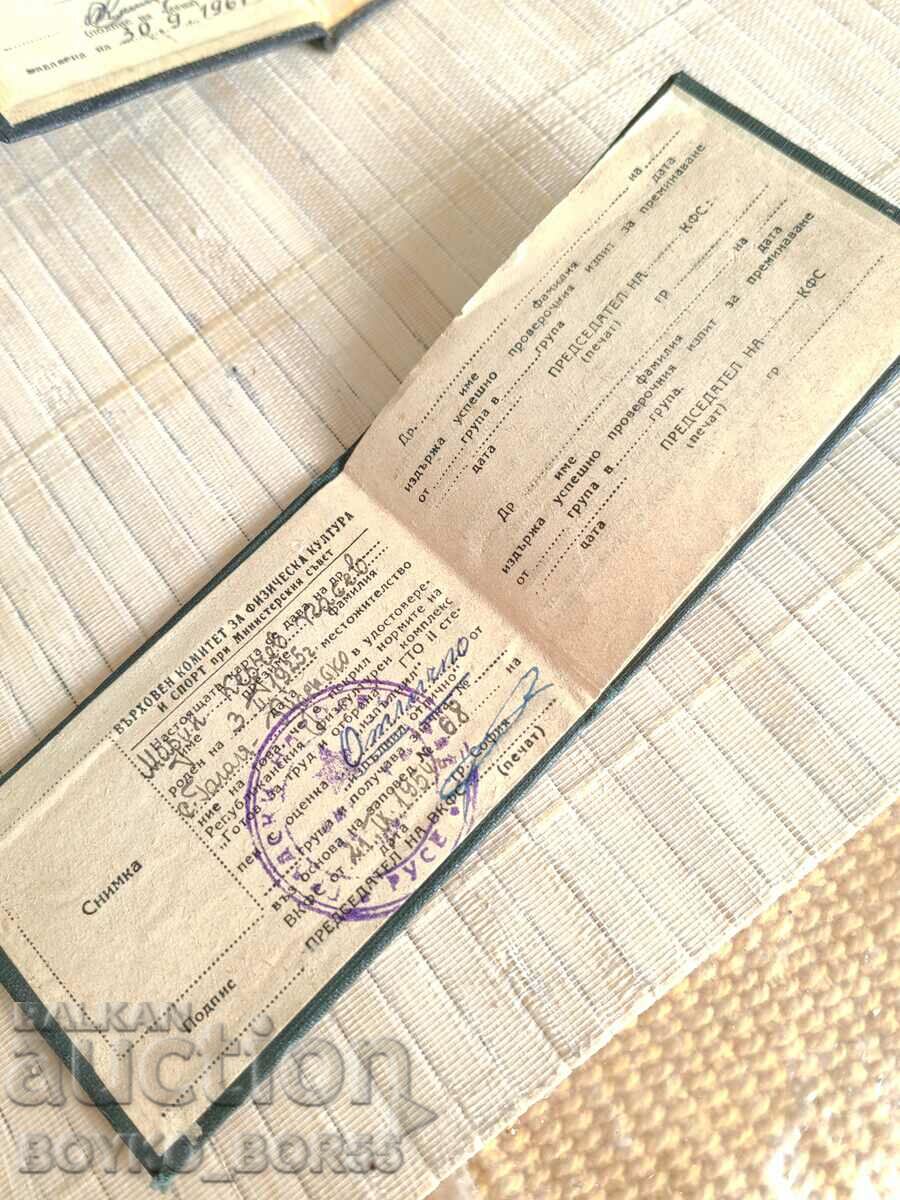 30.9.1961
издадена на
ВЪРХОВЕН КОМИТЕТ ЗА ФИЗИЧЕСКА КУЛТУРА
И СПОРТ при Министерския съвет
Настоящата карта се дава на др.
Марин
име презиме фамилия
роден на 3 1935 г. местожителство
с.
в удостовере-
ние на това, че е покрил нормите на
Републиканския физкултурен комплекс
„Готов за труд и отбрана“ ГТО II сте-
пен с оценка изпълнил Отлично
изпълнил отлично
група и получава значка №
въз основа на заповед № 68 от
ВКФС от 21.IX.1954 на
дата гр. София
ПРЕДСЕДАТЕЛ НА ВКФС
(печат)
РУСЕ
Снимка
Подпис
Др. на
име фамилия дата
издържа успешно проверочния изпит за преминаване
от група в група
дата ПРЕДСЕДАТЕЛ НА КФС:
(печат) гр
Др на
име фамилия дата
издържа успешно проверочния изпит за преминаване
от група в група.
дата ПРЕДСЕДАТЕЛ НА КФС
(печат) гр
BALKAN
auction
BOYKO_BOR55